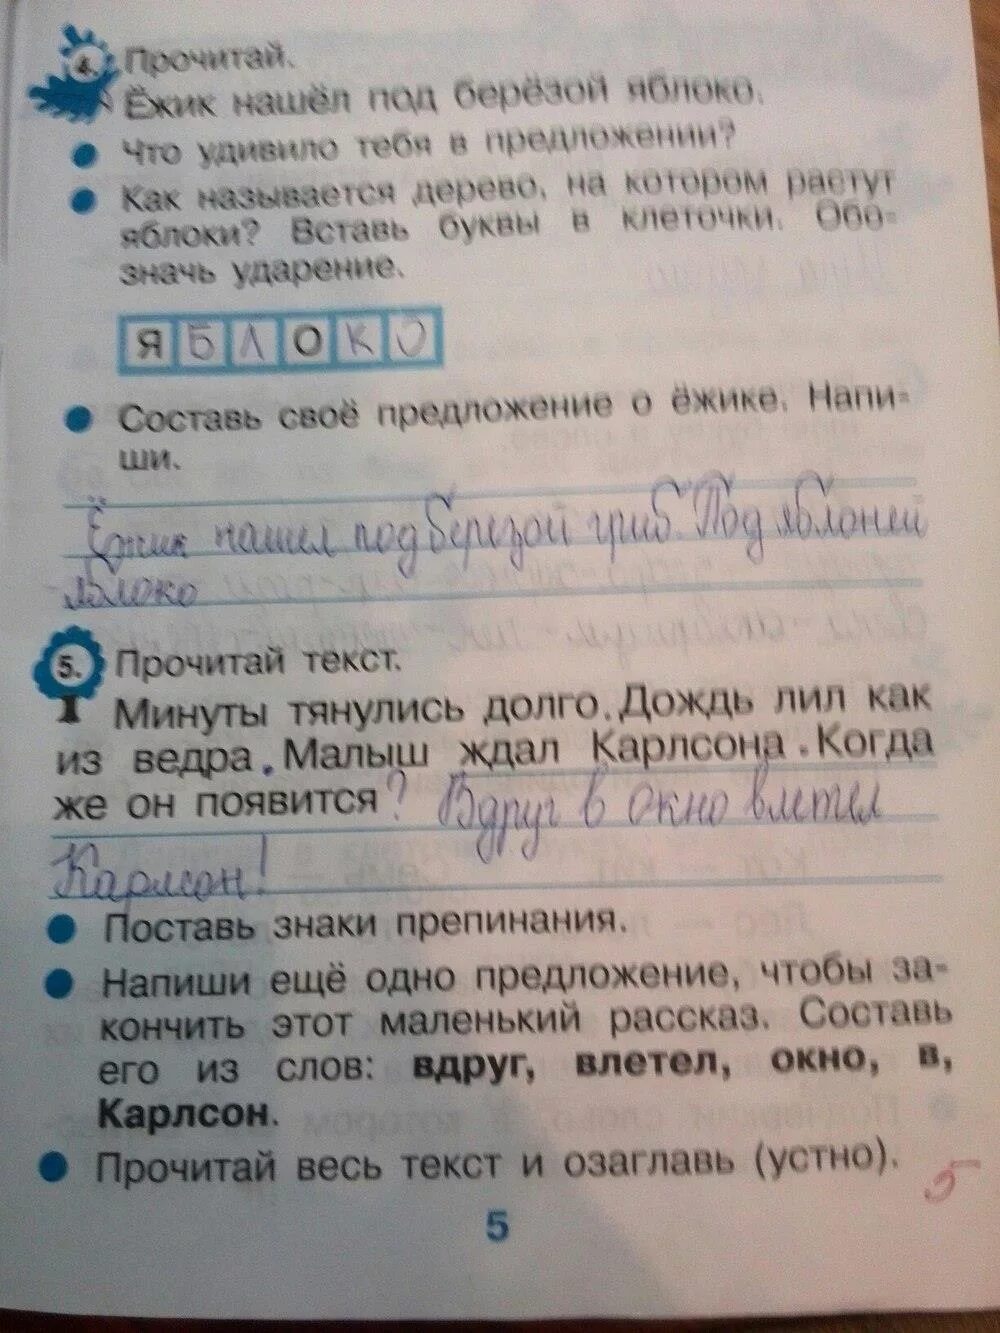 4. Прочитай.
Ёжик нашёл под берёзой яблоко.
Что удивило тебя в предложении?
Как называется дерево, на котором растут
яблоки? Вставь буквы в клеточки. Обо-
значь ударение.
ЯБЛОКО
Составь своё предложение о ёжике. Напи-
ши.
Ёжик нашел под березой гриб. Под яблоней
яблоко
5. Прочитай текст.
Минуты тянулись долго. Дождь лил как
из ведра. Малыш ждал Карлсона. Когда
же он появится? Вдруг в окно влетел
Карлсон!
Поставь знаки препинания.
Напиши ещё одно предложение, чтобы за-
кончить этот маленький рассказ. Составь
его из слов: вдруг, влетел, окно, в,
Карлсон.
Прочитай весь текст и озаглавь (устно).
5
5